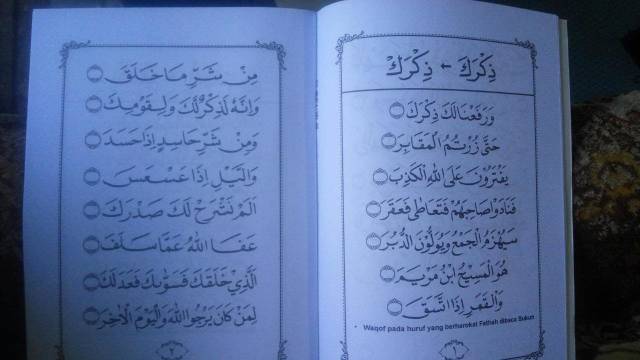 ذِكْرَكَ ← ذِكْرَكْ
وَرَفَعْنَا لَكَ ذِكْرَكَ
حَتَّى زُرْتُمُ الْمَقَابِرَ
يَفْتَرُونَ عَلَى اللهِ الْكَذِبَ
فَنَادَوْا صَاحِبَهُمْ فَتَعَاطَى فَعَقَرَ
سَيُهْزَمُ الْجَمْعُ وَيُوَلُّونَ الدُّبُرَ
هُوَ الْمَسِيْحُ ابْنُ مَرْيَمَ
وَالْقَمَرِ إِذَا اتَّسَقَ
Waqof pada huruf yang berharokat Fathah dibaca Sukun
مِنْ شَرِّ مَا خَلَقَ
وَإِنَّهُ لَذِكْرٌ لَّكَ وَلِقَوْمِكَ
وَمِنْ شَرِّ حَاسِدٍ إِذَا حَسَدَ
وَالَّيْلِ إِذَا عَسْعَسَ
أَلَمْ نَشْرَحْ لَكَ صَدْرَكَ
عَفَا اللهُ عَمَّا سَلَفَ
الَّذِيْ خَلَقَكَ فَسَوّٰىكَ فَعَدَلَكَ
لِمَنْ كَانَ يَرْجُوا اللهَ وَالْيَوْمَ الْاٰخِرَ
٢